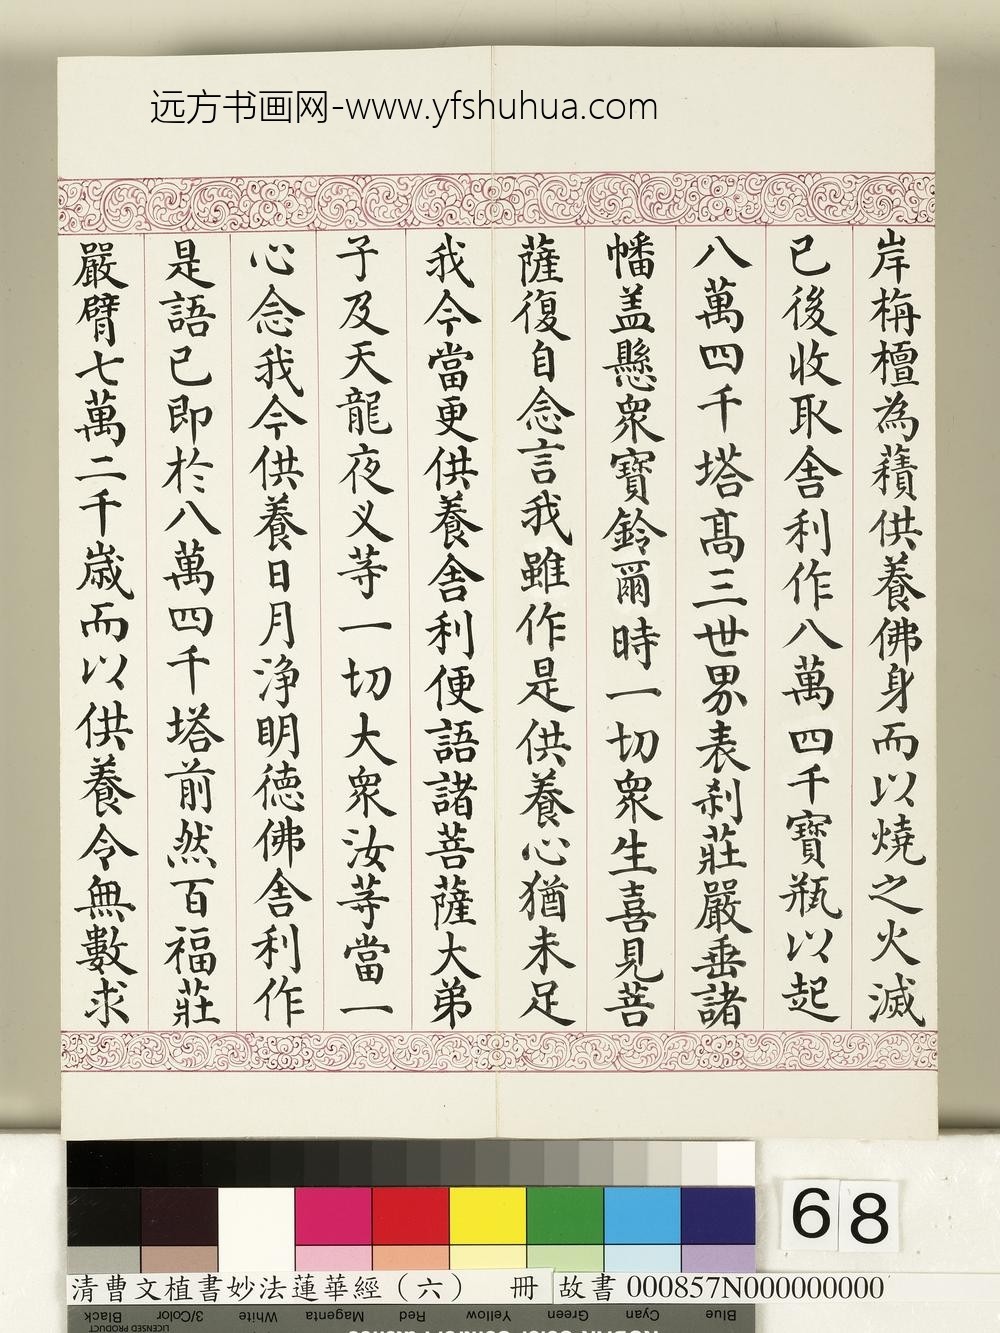 远方书画网-www.yfshuhua.com
岸栴檀為𧂐供養佛身而以燒之火滅
已後收取舍利作八萬四千寶瓶以起
八萬四千塔髙三世界表刹莊嚴垂諸
幡盖懸衆寶鈴爾時一切衆生喜見菩
薩復自念言我雖作是供養心猶未足
我今當更供養舍利便語諸菩薩大弟
子及天龍夜义等一切大衆汝等當一
心念我今供養日月淨明德佛舍利作
是語已即於八萬四千塔前然百福莊
嚴臂七萬二千歳而以供養令無數求
68
清曹文植書妙法蓮華經（六） 冊 故書 000857N000000000
Black 3/Color White Magenta Red Yellow Green Cyan Blue
LICENSED PRODUCT